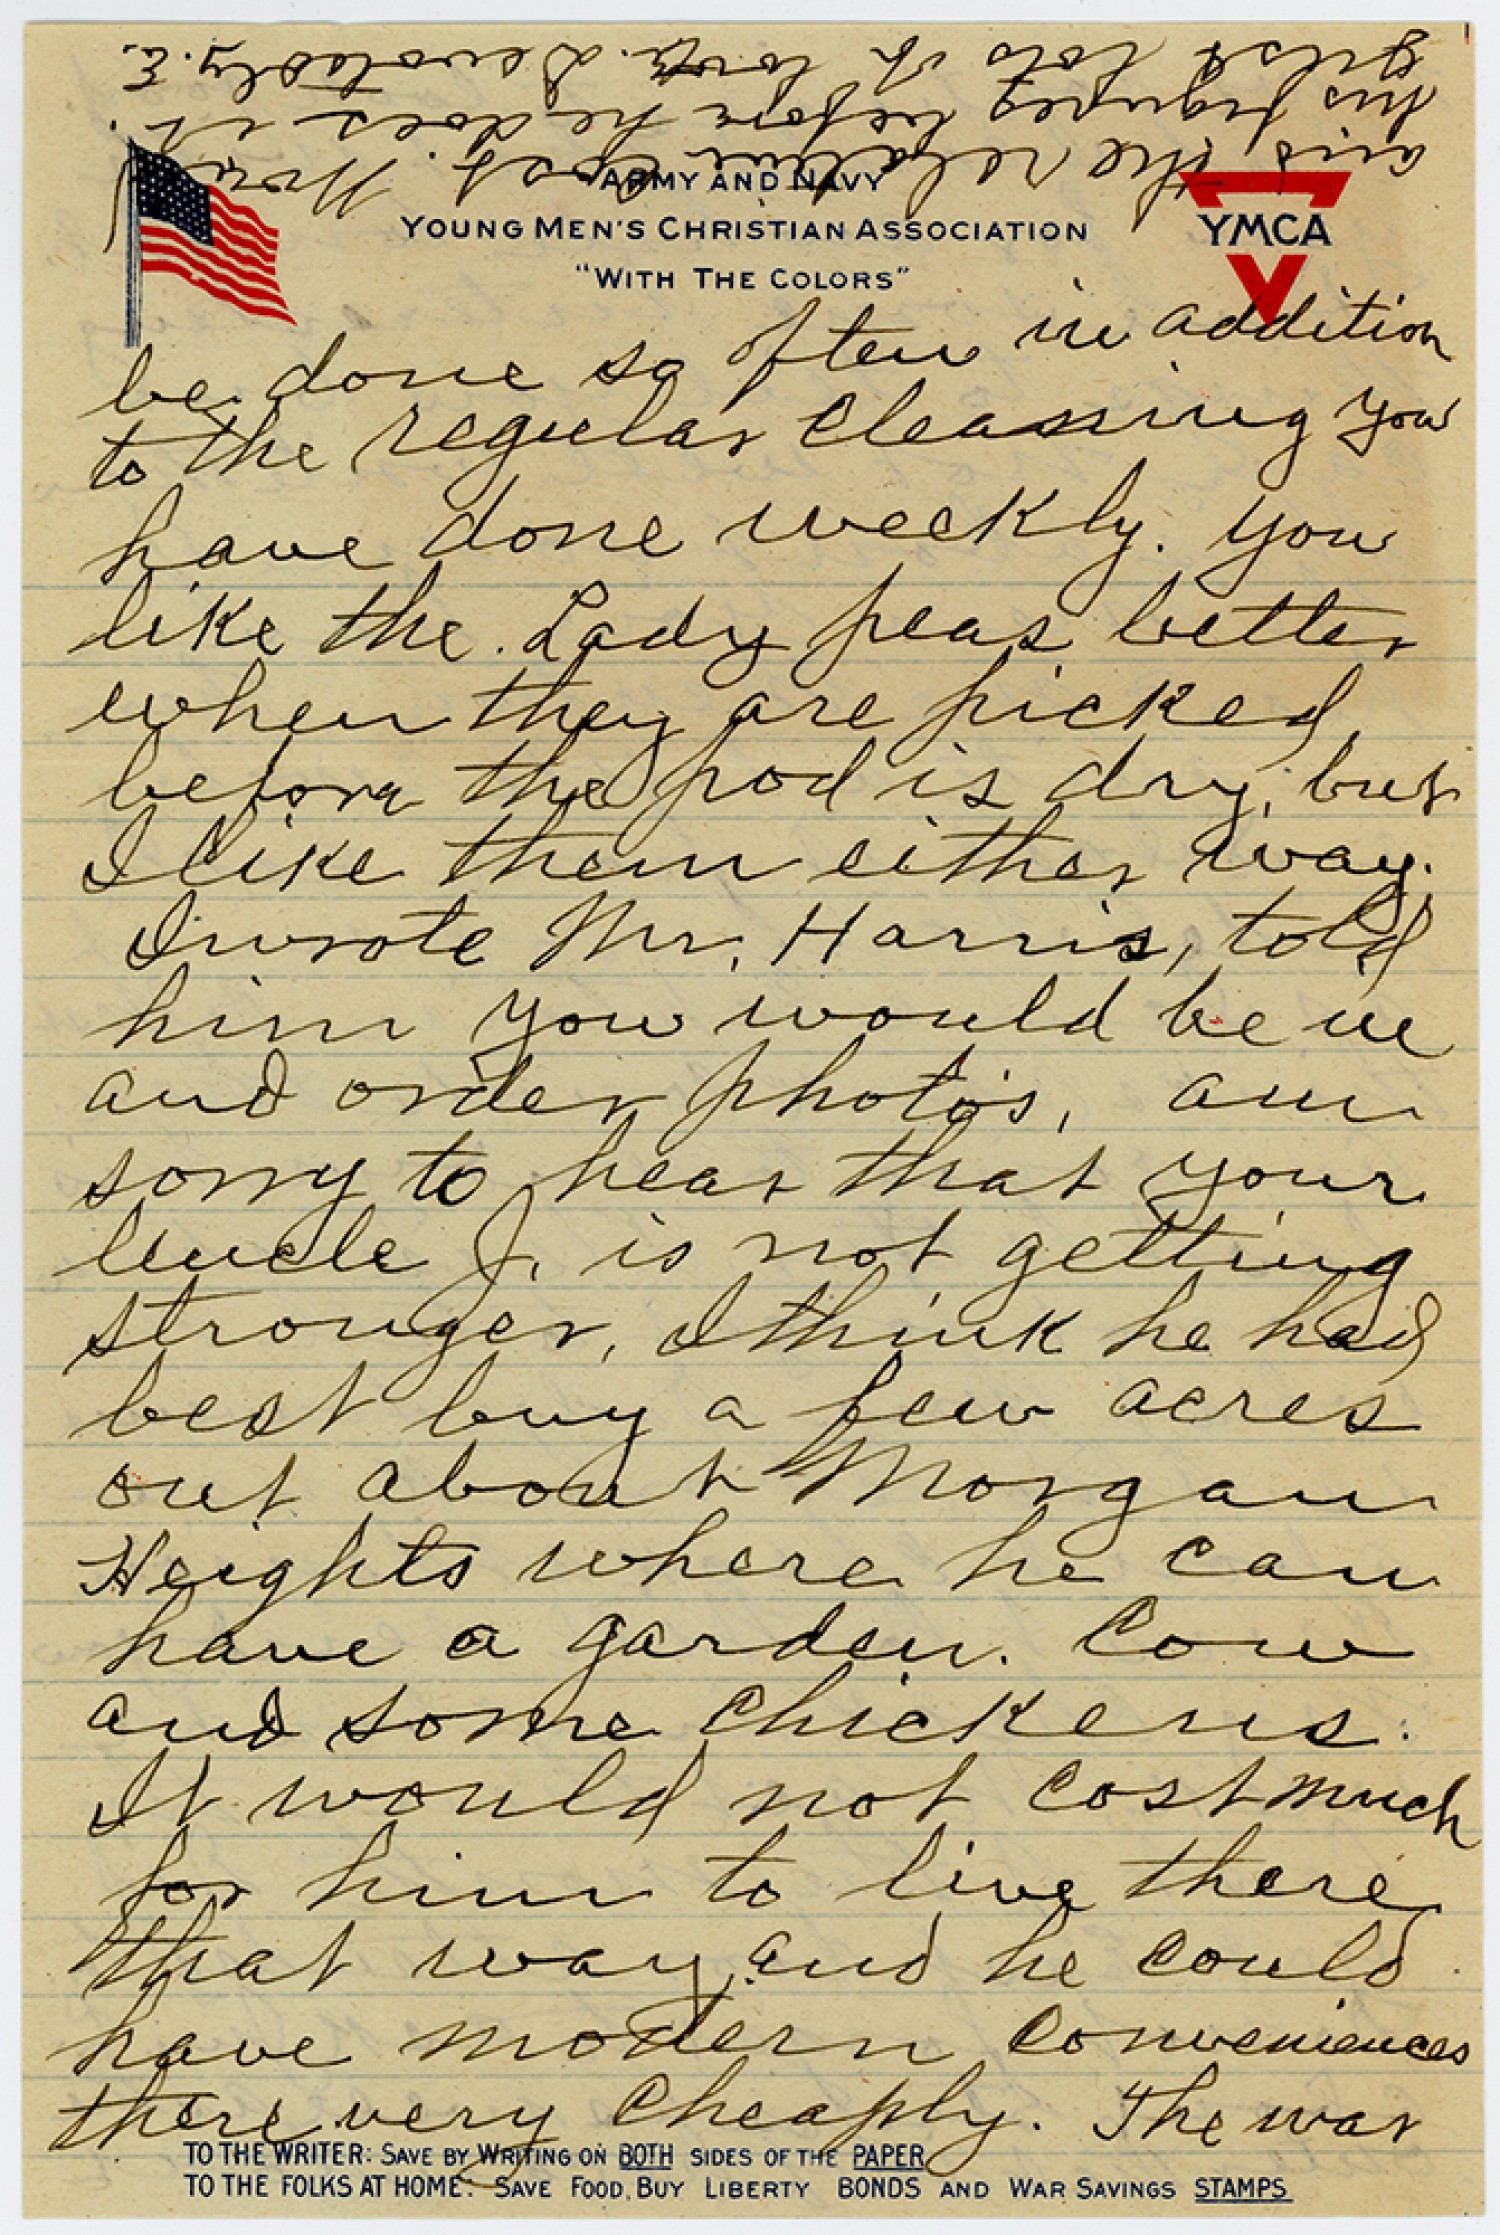 ARMY AND NAVY
YOUNG MEN'S CHRISTIAN ASSOCIATION
"WITH THE COLORS"
YMCA
be done so often in addition
to the regular cleaning you
have done weekly. You
like the Lady peas better
when they are picked
before the pod is dry, but
I like them either way.
I wrote Mr. Harris, told
him you would be in
and order photo's, am
sorry to hear that your
Uncle J. is not getting
stronger, I think he had
best buy a few acres
out about Morgan
Heights where he can
have a garden. Cow
and some chickens.
It would not cost much
for him to live there
that way and he could
have modern conveniences
there very cheaply. The war
TO THE WRITER: SAVE BY WRITING ON BOTH SIDES OF THE PAPER
TO THE FOLKS AT HOME: SAVE FOOD, BUY LIBERTY BONDS AND WAR SAVINGS STAMPS
and the relative cost. Now
his figures before he does it.
just lots of love. Devotedly. E.